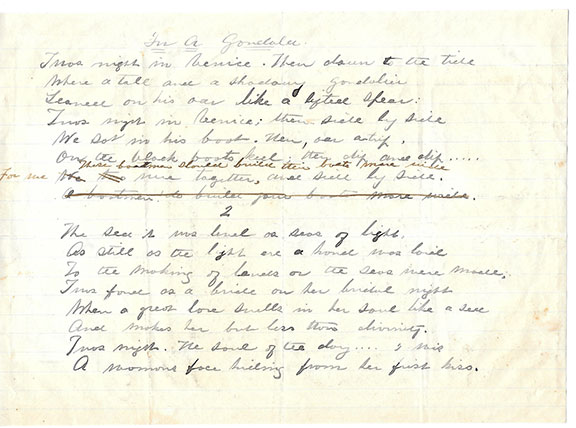 In A Gondola.
Twas night in Venice. Then down to the tide
Where a tall and a shadowy gondolier
Leaned on his oar like a lifted spear:
Twas night in Venice; then side by side
We sat in his boat. Then, oar
On the black boats keel, then dip and dip.....
These boatmen should build their boats more wide
For we were together, and side by side.
boatmen should build boats more wide.
2
The sea it was level as seas of light,
As still as the light ere a hand was laid
To the making of lands or the seas were made,
Twas fond as a bride on her bridal night
When a great love swells in her soul like a sea
And makes her but less than divinity.
Twas night. The soul of the day....
A womans face hiding from her first kiss.